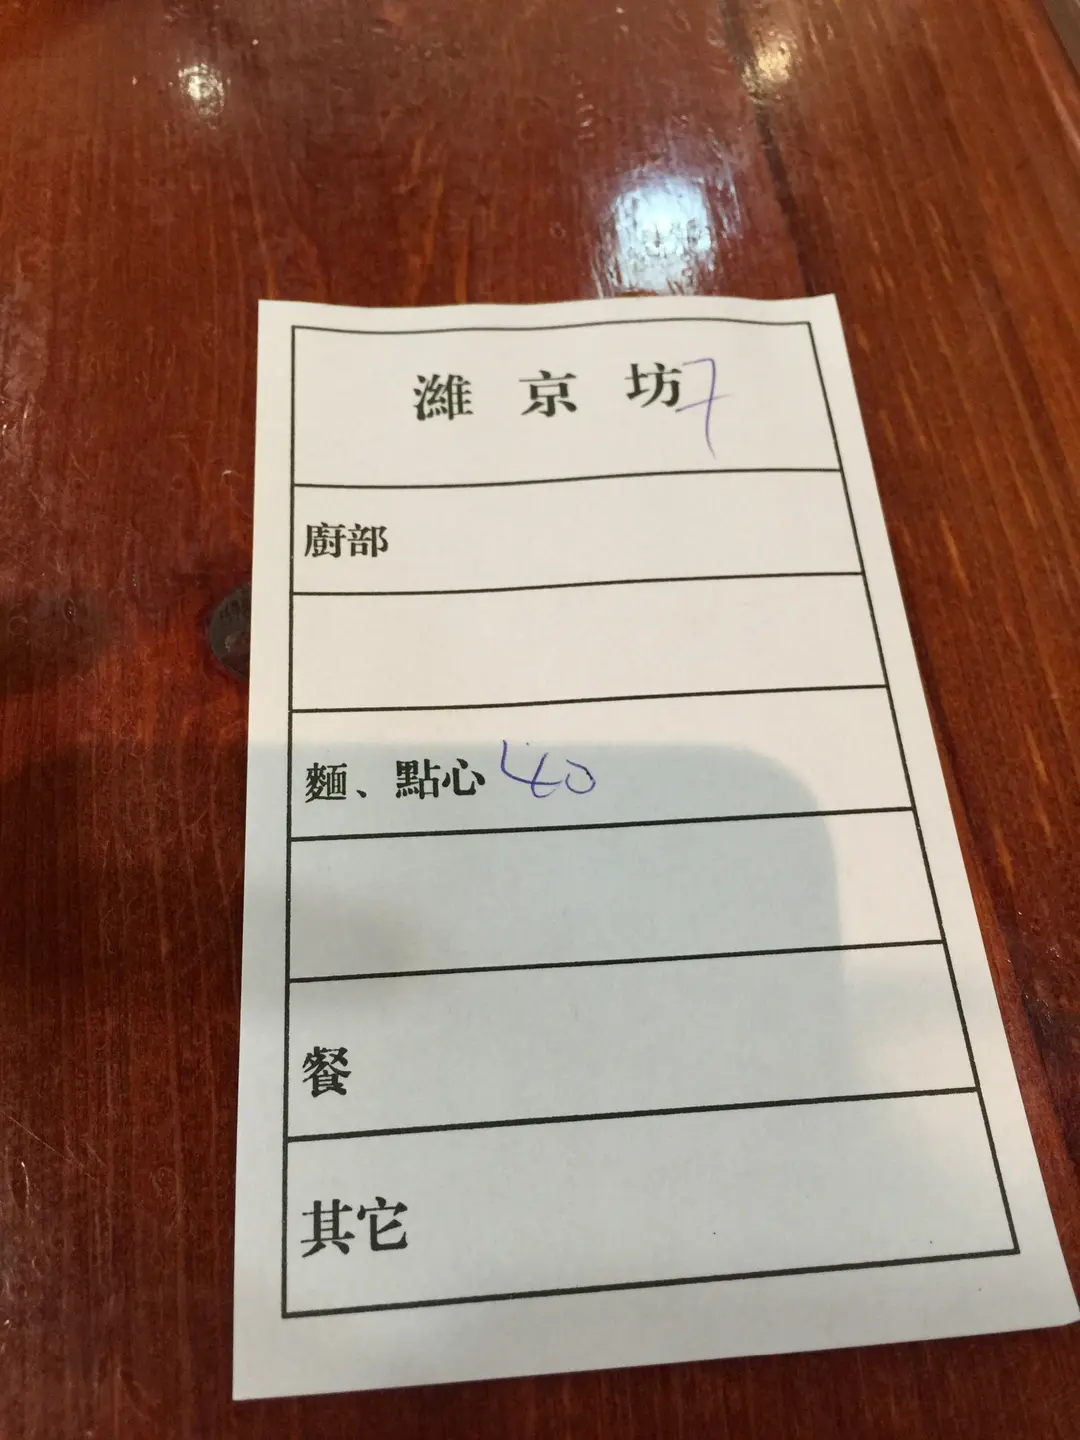 濰京坊7
廚部
麵、點心 40
餐
其它